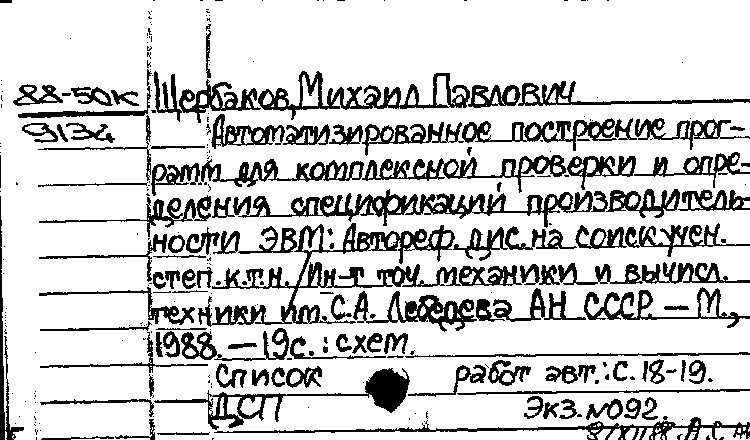 88-50К Щербаков, Михаил Павлович
9134 Автоматизированное построение прог-
рамм для комплексной проверки и опре-
деления спецификаций производитель-
ности ЭВМ: Автореф. дис. на соиск. учен.
степ. к.т.н. / Ин-т точ. механики и вычисл.
техники им. С.А. Лебедева АН СССР. — М.,
1988. — 19с. : схем.
Список работ авт.: С. 18-19.
ДСП Экз. №092.